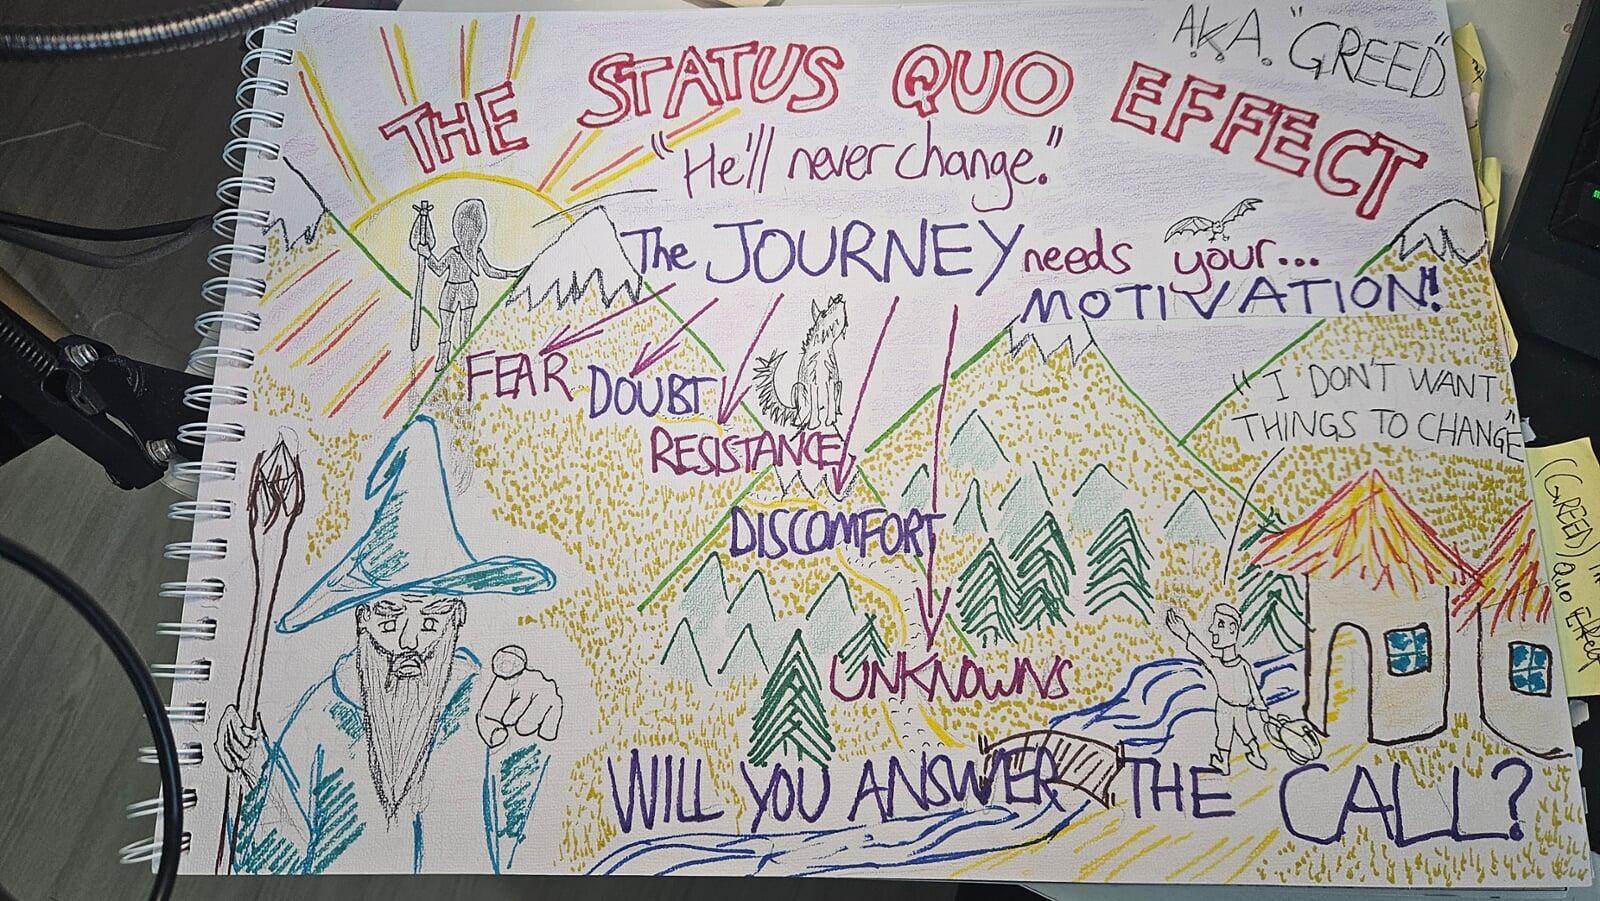 A.K.A. "GREED"
THE STATUS QUO EFFECT
"He'll never change."
The JOURNEY needs your...
MOTIVATION!!
FEAR
DOUBT
RESISTANCE
DISCOMFORT
UNKNOWNS
"I DON'T WANT
THINGS TO CHANGE"
WILL YOU ANSWER THE CALL?
(GREED)
Quo Effect